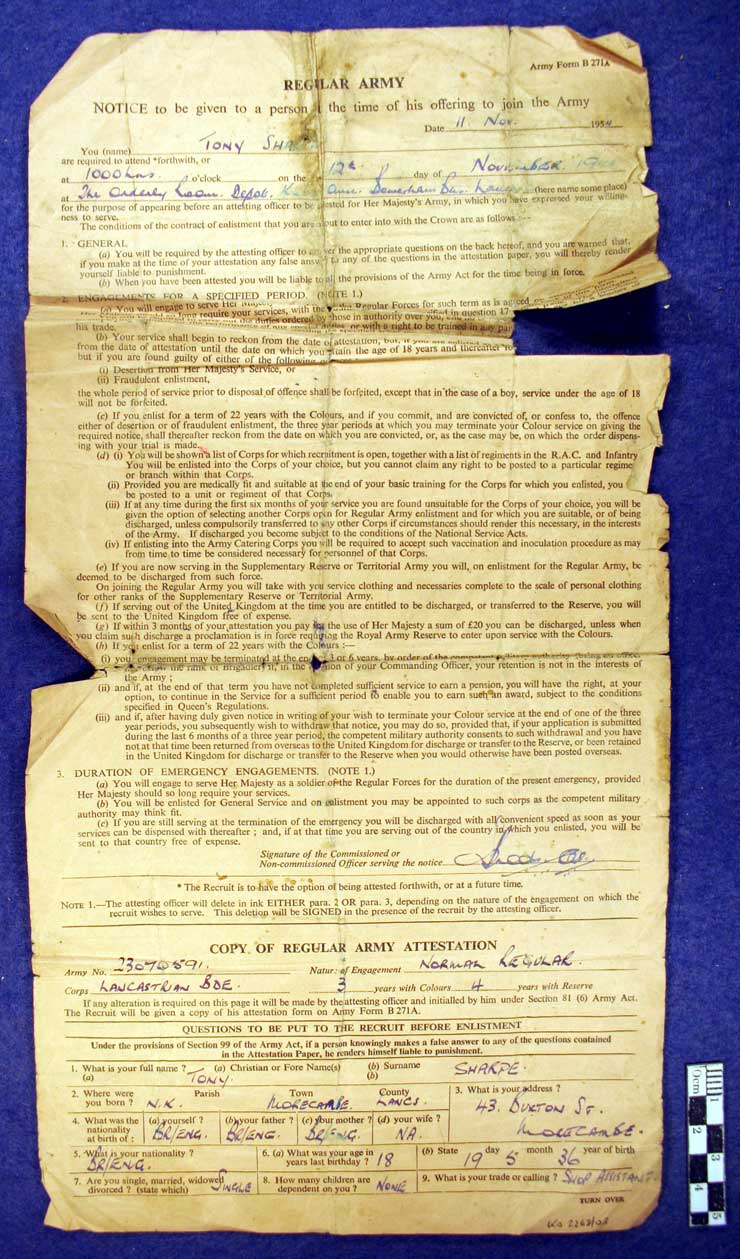 Army Form B 271A
REGULAR ARMY
NOTICE to be given to a person at the time of his offering to join the Army
Date 11 Nov. 1954
You (name) TONY SHARPE
are required to attend *forthwith, or
at 1000 hrs. o'clock on the 12th day of NOVEMBER
at The Orderly Room. Depot. (here name some place)
for the purpose of appearing before an attesting officer to be attested for Her Majesty's Army, in which you have expressed your willing-
ness to serve.
The conditions of the contract of enlistment that you are about to enter into with the Crown are as follows :—
1. GENERAL
(a) You will be required by the attesting officer to answer the appropriate questions on the back hereof, and you are warned that,
if you make at the time of your attestation any false answer to any of the questions in the attestation paper, you will thereby render
yourself liable to punishment.
(b) When you have been attested you will be liable to all the provisions of the Army Act for the time being in force.
2. ENGAGEMENTS FOR A SPECIFIED PERIOD. (NOTE 1.)
(a) You will engage to serve Her Regular Forces for such term as is agreed
long require your services, with the
duties ordered by those in authority over you, specified in question 17
his trade. or with a right to be trained in any
(b) Your service shall begin to reckon from the date of attestation, but, if you are
from the date of attestation until the date on which you attain the age of 18 years and thereafter
but if you are found guilty of either of the following
(i) Desertion from Her Majesty's Service, or
(ii) Fraudulent enlistment,
the whole period of service prior to disposal of offence shall be forfeited, except that in the case of a boy, service under the age of 18
will not be forfeited.
(c) If you enlist for a term of 22 years with the Colours, and if you commit, and are convicted of, or confess to, the offence
either of desertion or of fraudulent enlistment, the three year periods at which you may terminate your Colour service on giving the
required notice, shall thereafter reckon from the date on which you are convicted, or, as the case may be, on which the order dispens-
ing with your trial is made.
(d) (i) You will be shown a list of Corps for which recruitment is open, together with a list of regiments in the R.A.C. and Infantry
You will be enlisted into the Corps of your choice, but you cannot claim any right to be posted to a particular regime
or branch within that Corps.
(ii) Provided you are medically fit and suitable at the end of your basic training for the Corps for which you enlisted, you
be posted to a unit or regiment of that Corps.
(iii) If at any time during the first six months of your service you are found unsuitable for the Corps of your choice, you will be
given the option of selecting another Corps open for Regular Army enlistment and for which you are suitable, or of being
discharged, unless compulsorily transferred to any other Corps if circumstances should render this necessary, in the interests
of the Army. If discharged you become subject to the conditions of the National Service Acts.
(iv) If enlisting into the Army Catering Corps you will be required to accept such vaccination and inoculation procedure as may
from time to time be considered necessary for personnel of that Corps.
(e) If you are now serving in the Supplementary Reserve or Territorial Army you will, on enlistment for the Regular Army, be
deemed to be discharged from such force.
On joining the Regular Army you will take with you service clothing and necessaries complete to the scale of personal clothing
for other ranks of the Supplementary Reserve or Territorial Army.
(f) If serving out of the United Kingdom at the time you are entitled to be discharged, or transferred to the Reserve, you will
be sent to the United Kingdom free of expense.
(g) If within 3 months of your attestation you pay for the use of Her Majesty a sum of £20 you can be discharged, unless when
you claim such discharge a proclamation is in force requiring the Royal Army Reserve to enter upon service with the Colours.
(h) If you enlist for a term of 22 years with the Colours :—
(i) your engagement may be terminated at the end of 3 or 6 years, by order of the competent
the rank of Brigadier) if, in the opinion of your Commanding Officer, your retention is not in the interests of
the Army ;
(ii) and if, at the end of that term you have not completed sufficient service to earn a pension, you will have the right, at your
option, to continue in the Service for a sufficient period to enable you to earn such an award, subject to the conditions
specified in Queen's Regulations.
(iii) and if, after having duly given notice in writing of your wish to terminate your Colour service at the end of one of the three
year periods, you subsequently wish to withdraw that notice, you may do so, provided that, if your application is submitted
during the last 6 months of a three year period, the competent military authority consents to such withdrawal and you have
not at that time been returned from overseas to the United Kingdom for discharge or transfer to the Reserve, or been retained
in the United Kingdom for discharge or transfer to the Reserve when you would otherwise have been posted overseas.
3. DURATION OF EMERGENCY ENGAGEMENTS. (NOTE 1.)
(a) You will engage to serve Her Majesty as a soldier of the Regular Forces for the duration of the present emergency, provided
Her Majesty should so long require your services.
(b) You will be enlisted for General Service and on enlistment you may be appointed to such corps as the competent military
authority may think fit.
(c) If you are still serving at the termination of the emergency you will be discharged with all convenient speed as soon as your
services can be dispensed with thereafter ; and, if at that time you are serving out of the country in which you enlisted, you will be
sent to that country free of expense.
Signature of the Commissioned or
Non-commissioned Officer serving the notice
* The Recruit is to have the option of being attested forthwith, or at a future time.
NOTE 1.—The attesting officer will delete in ink EITHER para. 2 OR para. 3, depending on the nature of the engagement on which the
recruit wishes to serve. This deletion will be SIGNED in the presence of the recruit by the attesting officer.
COPY OF REGULAR ARMY ATTESTATION
Army No. 23070591. Nature of Engagement NORMAL REGULAR.
Corps LANCASTRIAN BDE. 3 years with Colours 4 years with Reserve
If any alteration is required on this page it will be made by the attesting officer and initialled by him under Section 81 (6) Army Act.
The Recruit will be given a copy of his attestation form on Army Form B 271A.
QUESTIONS TO BE PUT TO THE RECRUIT BEFORE ENLISTMENT
Under the provisions of Section 99 of the Army Act, if a person knowingly makes a false answer to any of the questions contained
in the Attestation Paper, he renders himself liable to punishment.
1. What is your full name ? (a) Christian or Fore Name(s) (b) Surname
(a) TONY. (b) SHARPE.
2. Where were you born ? Parish N.K. Town MORECAMBE. County LANCS.
3. What is your address ? 43. BUXTON ST. MORECAMBE.
4. What was the nationality at birth of : (a) yourself ? BR/ENG. (b) your father ? BR/ENG. (c) your mother ? BR/ENG. (d) your wife ? NA.
5. What is your nationality ? BR/ENG.
6. (a) What was your age in years last birthday ? 18 (b) State 19 day 5 month 36 year of birth
7. Are you single, married, widowed divorced ? (state which) SINGLE
8. How many children are dependent on you ? NONE
9. What is your trade or calling ? SHOP ASSISTANT.
TURN OVER
KO 2268/02
0cm 1 2 3 4 5